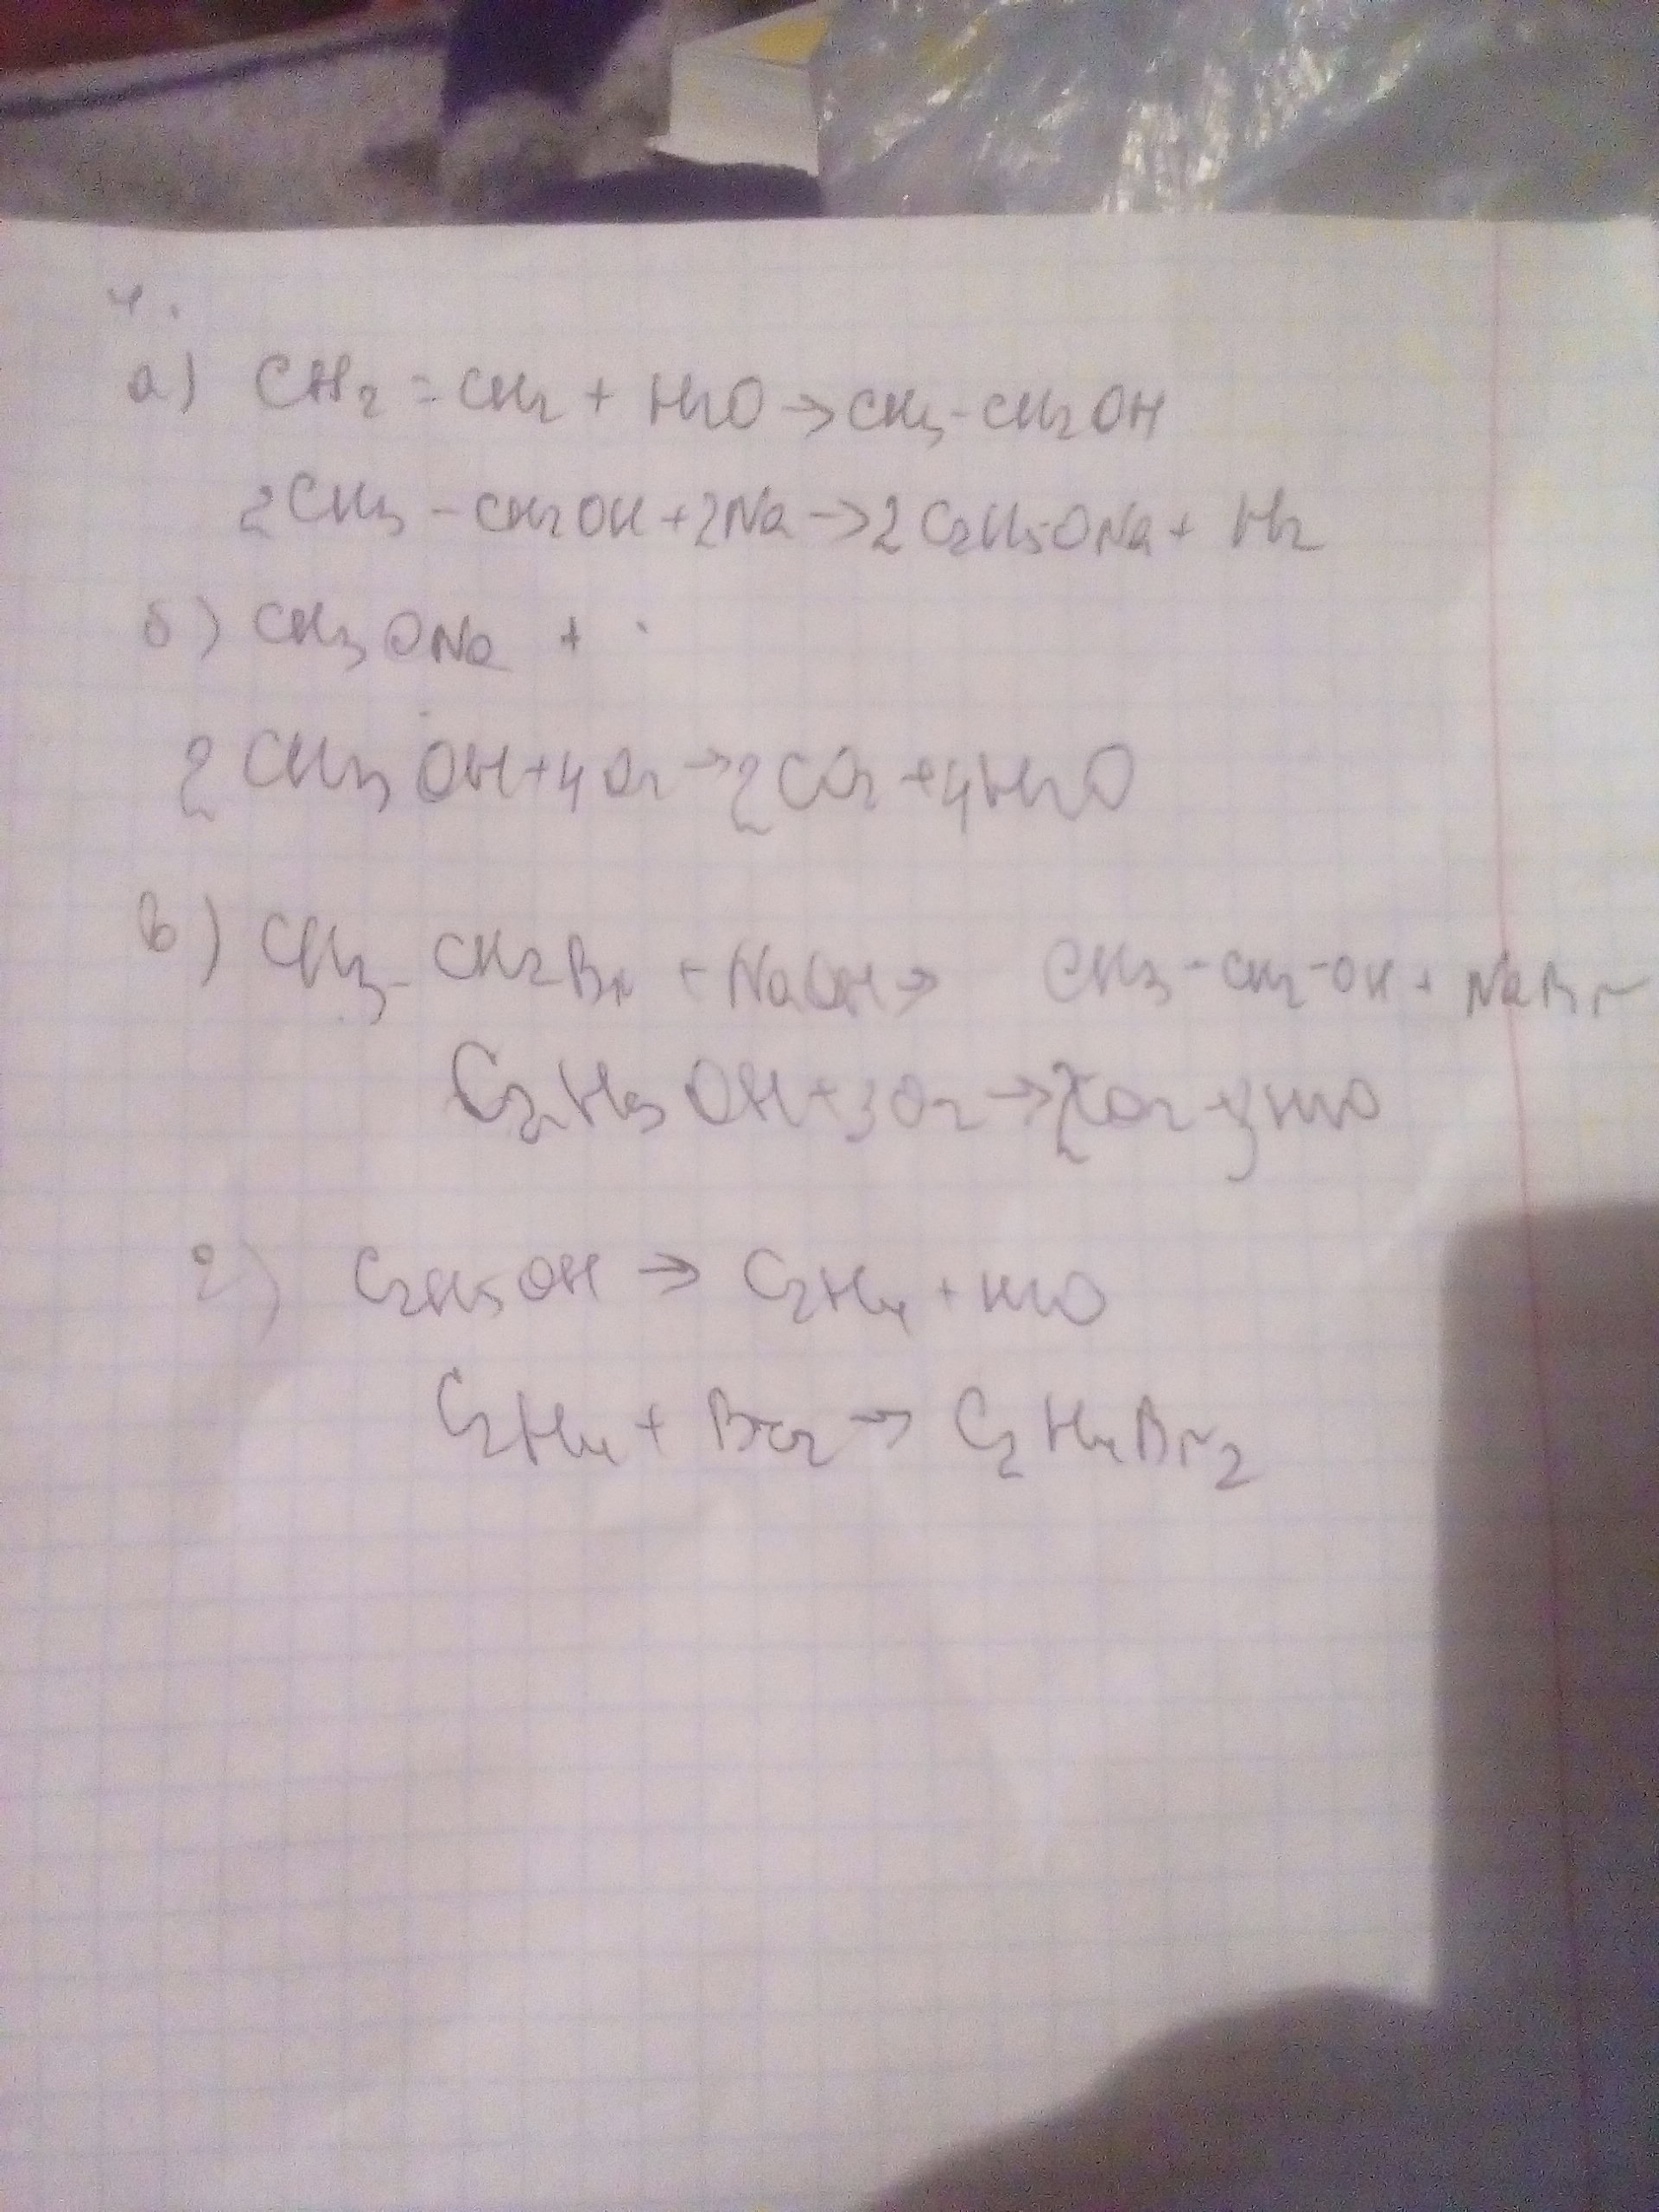 4.
а) CH2 = CH2 + H2O → CH3 - CH2OH
2CH3 - CH2OH + 2Na → 2C2H5ONa + H2
б) CH3ONa +
2CH3OH + 4O2 → 2CO2 + 4H2O
в) CH3 - CH2Br + NaOH → CH3 - CH2 - OH + NaBr
C2H5OH + 3O2 → 2CO2 + 3H2O
г) C2H5OH → C2H4 + H2O
C2H4 + Br2 → C2H4Br2